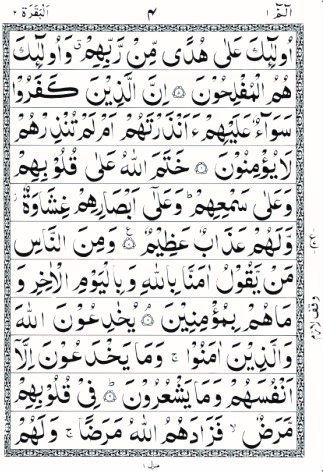 الٓمّٓ ١ ٤ اَلْبَقَرَة ٢
اُولٰٓئِكَ عَلٰى هُدًى مِّنْ رَّبِّهِمْ ۙ وَاُولٰٓئِكَ
هُمُ الْمُفْلِحُوْنَ ۝ اِنَّ الَّذِيْنَ كَفَرُوْا
سَوَآءٌ عَلَيْهِمْ ءَاَنْذَرْتَهُمْ اَمْ لَمْ تُنْذِرْهُمْ
لَا يُؤْمِنُوْنَ ۝ خَتَمَ اللّٰهُ عَلٰى قُلُوْبِهِمْ
وَعَلٰى سَمْعِهِمْ ؕ وَعَلٰٓى اَبْصَارِهِمْ غِشَاوَةٌ ؗ
وَّلَهُمْ عَذَابٌ عَظِيْمٌ ۝ وَمِنَ النَّاسِ
مَنْ يَّقُوْلُ اٰمَنَّا بِاللّٰهِ وَبِالْيَوْمِ الْاٰخِرِ وَ
مَا هُمْ بِمُؤْمِنِيْنَ ۝ يُخٰدِعُوْنَ اللّٰهَ
وَالَّذِيْنَ اٰمَنُوْا ۚ وَمَا يَخْدَعُوْنَ اِلَّآ
اَنْفُسَهُمْ وَمَا يَشْعُرُوْنَ ۝ فِيْ قُلُوْبِهِمْ
مَّرَضٌ ۙ فَزَادَهُمُ اللّٰهُ مَرَضًا ۚ وَلَهُمْ
وقف لازم
منزل ١